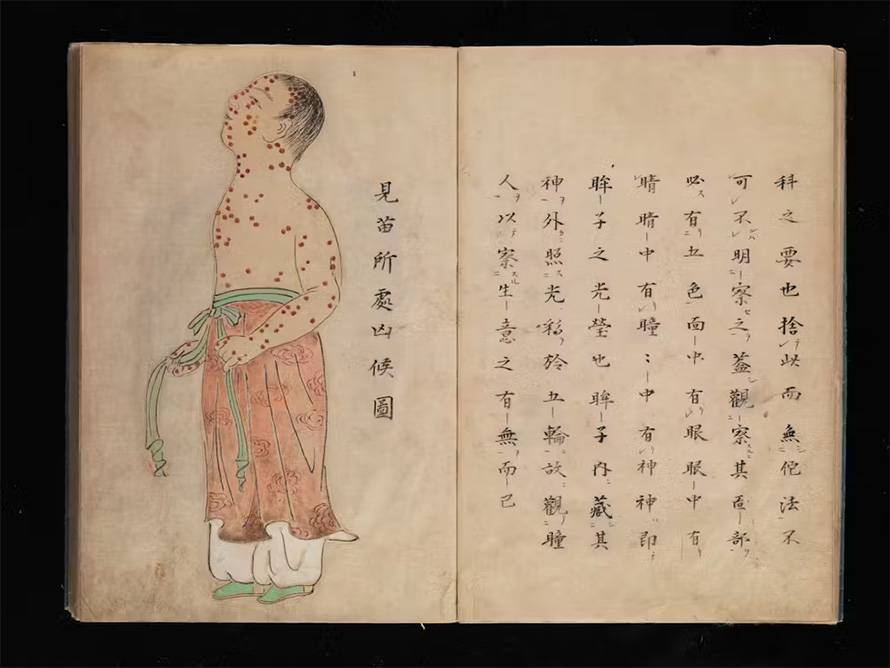 科之要也捨此而無佗法不
可不明察之蓋觀察其面部
必有五色面中有眼眼中有
睛睛中有瞳〻中有神神即
眸子之光瑩也眸子内藏其
神外照光彩於五輪故觀瞳
人以察生意之有無而已
見苗所處凶候圖